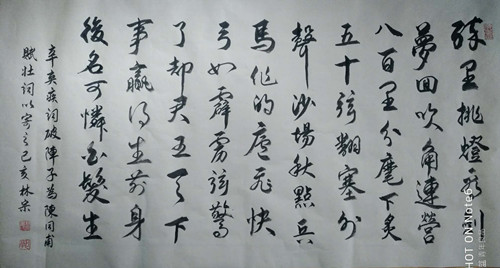 醉里挑燈看劍
夢回吹角連營
八百里分麾下炙
五十弦翻塞外
聲沙場秋點兵
馬作的盧飛快
弓如霹靂弦驚
了却君王天下
事贏得生前身
後名可憐白髮生
辛棄疾詞破陣子為陳同甫
賦壯詞以寄之己亥林宗
SHOT ON Note6